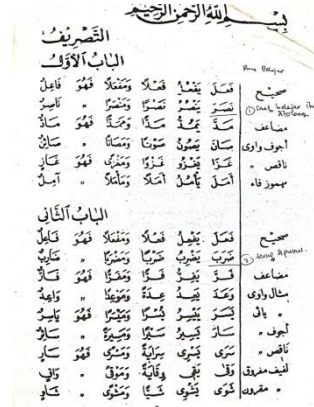 بِسْمِ اللّٰهِ الرَّحْمٰنِ الرَّحِيْمِ
التَّصْرِيْفُ
اَلْبَابُ الْاَوَّلُ
صحيح فَعَلَ يَفْعُلُ فَعْلًا وَمَفْعَلًا فَهُوَ فَاعِلٌ
" نَصَرَ يَنْصُرُ نَصْرًا وَمَنْصَرًا " نَاصِرٌ
مضاعف مَدَّ يَمُدُّ مَدًّا وَمَمَدًّا فَهُوَ مَادٌّ
أجوف واوى صَانَ يَصُوْنُ صَوْنًا وَمَصَانًا " صَائِنٌ
ناقص " غَزَا يَغْزُوْ غَزْوًا وَمَغْزًى فَهُوَ غَازٍ
مهموز فاء أَمَلَ يَأْمُلُ أَمَلًا وَمَأْمَلًا " آمِلٌ
اَلْبَابُ الثَّانِى
صحيح فَعَلَ يَفْعِلُ فَعْلًا وَمَفْعَلًا فَهُوَ فَاعِلٌ
" ضَرَبَ يَضْرِبُ ضَرْبًا وَمَضْرَبًا " ضَارِبٌ
مضاعف فَرَّ يَفِرُّ فَرًّا وَمَفَرًّا فَهُوَ فَارٌّ
مثال واوى وَعَدَ يَعِدُ عِدَةً وَمَوْعِدًا " وَاعِدٌ
" يائى يَسَرَ يَيْسِرُ يُسْرًا وَمَيْسِرًا فَهُوَ يَاسِرٌ
أجوف " سَارَ يَسِيْرُ سَيْرًا وَمَسِيْرَةً " سَائِرٌ
ناقص " سَرَى يَسْرِى سِرَايَةً وَمَسْرًى فَهُوَ سَارٍ
لفيف مفروق وَقَى يَقِى وِقَايَةً وَمَوْقًى " وَاقٍ
" مقرون شَوَى يَشْوِى شَيًّا وَمَشْوًى " شَاوٍ